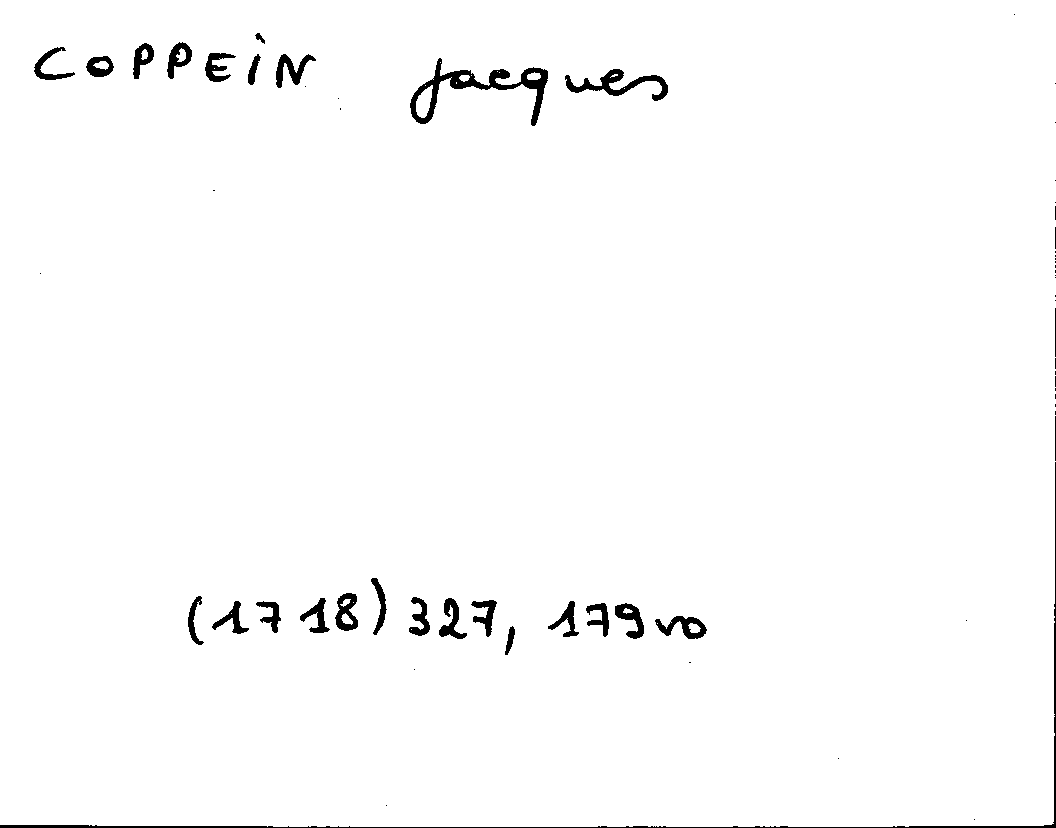 COPPEIN Jacques
(1718) 327, 179vo